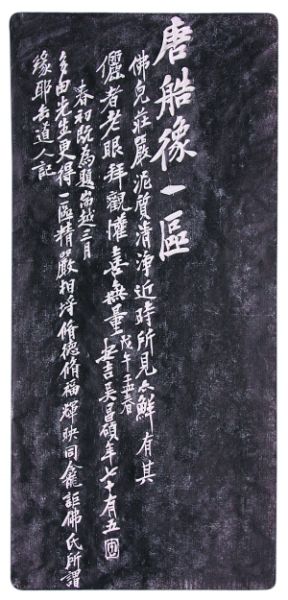 唐船像一區
佛兒莊嚴泥質清淨近時所見亦鮮有其
儷者老眼拜觀懽喜無量戊午孟春安吉吳昌碩年七十有五
春初既為題耑越三月
先生更得一區精嚴相埒脩德脩福輝映同龕詎佛氏所謂
緣耶缶道人記